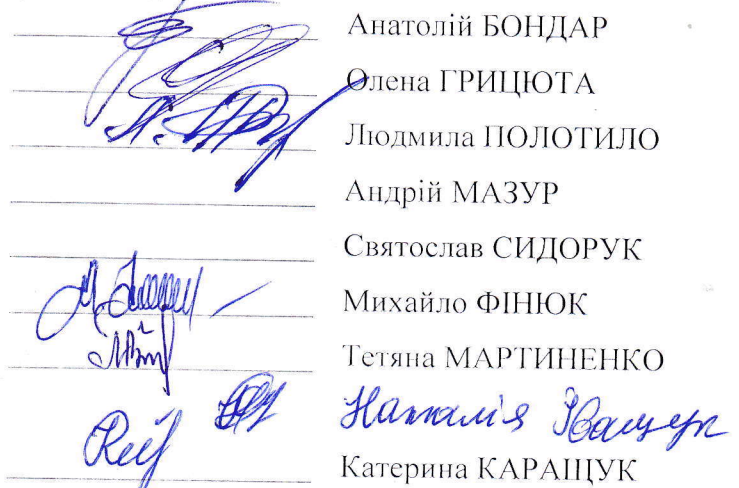 Анатолій БОНДАР
Олена ГРИЦЮТА
Людмила ПОЛОТИЛО
Андрій МАЗУР
Святослав СИДОРУК
Михайло ФІНЮК
Тетяна МАРТИНЕНКО
Наталія Іващук
Катерина КАРАЩУК